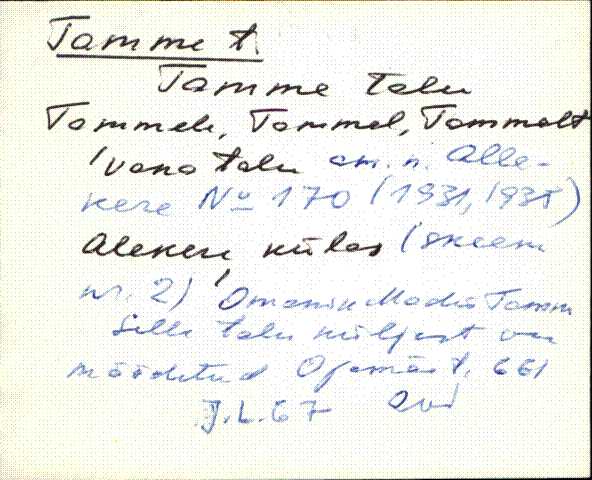 Tamme t.
Tamme talu
Tammele, Tammel, Tammelt
vana talu em. n. Alle-
kere № 170 (1931, 1935)
Alekere külas (skeem
nr. 2) Omanik Madis Tamm
Selle talu küljest on
mõõdetud Ojamäe t. 661
J.L. 67